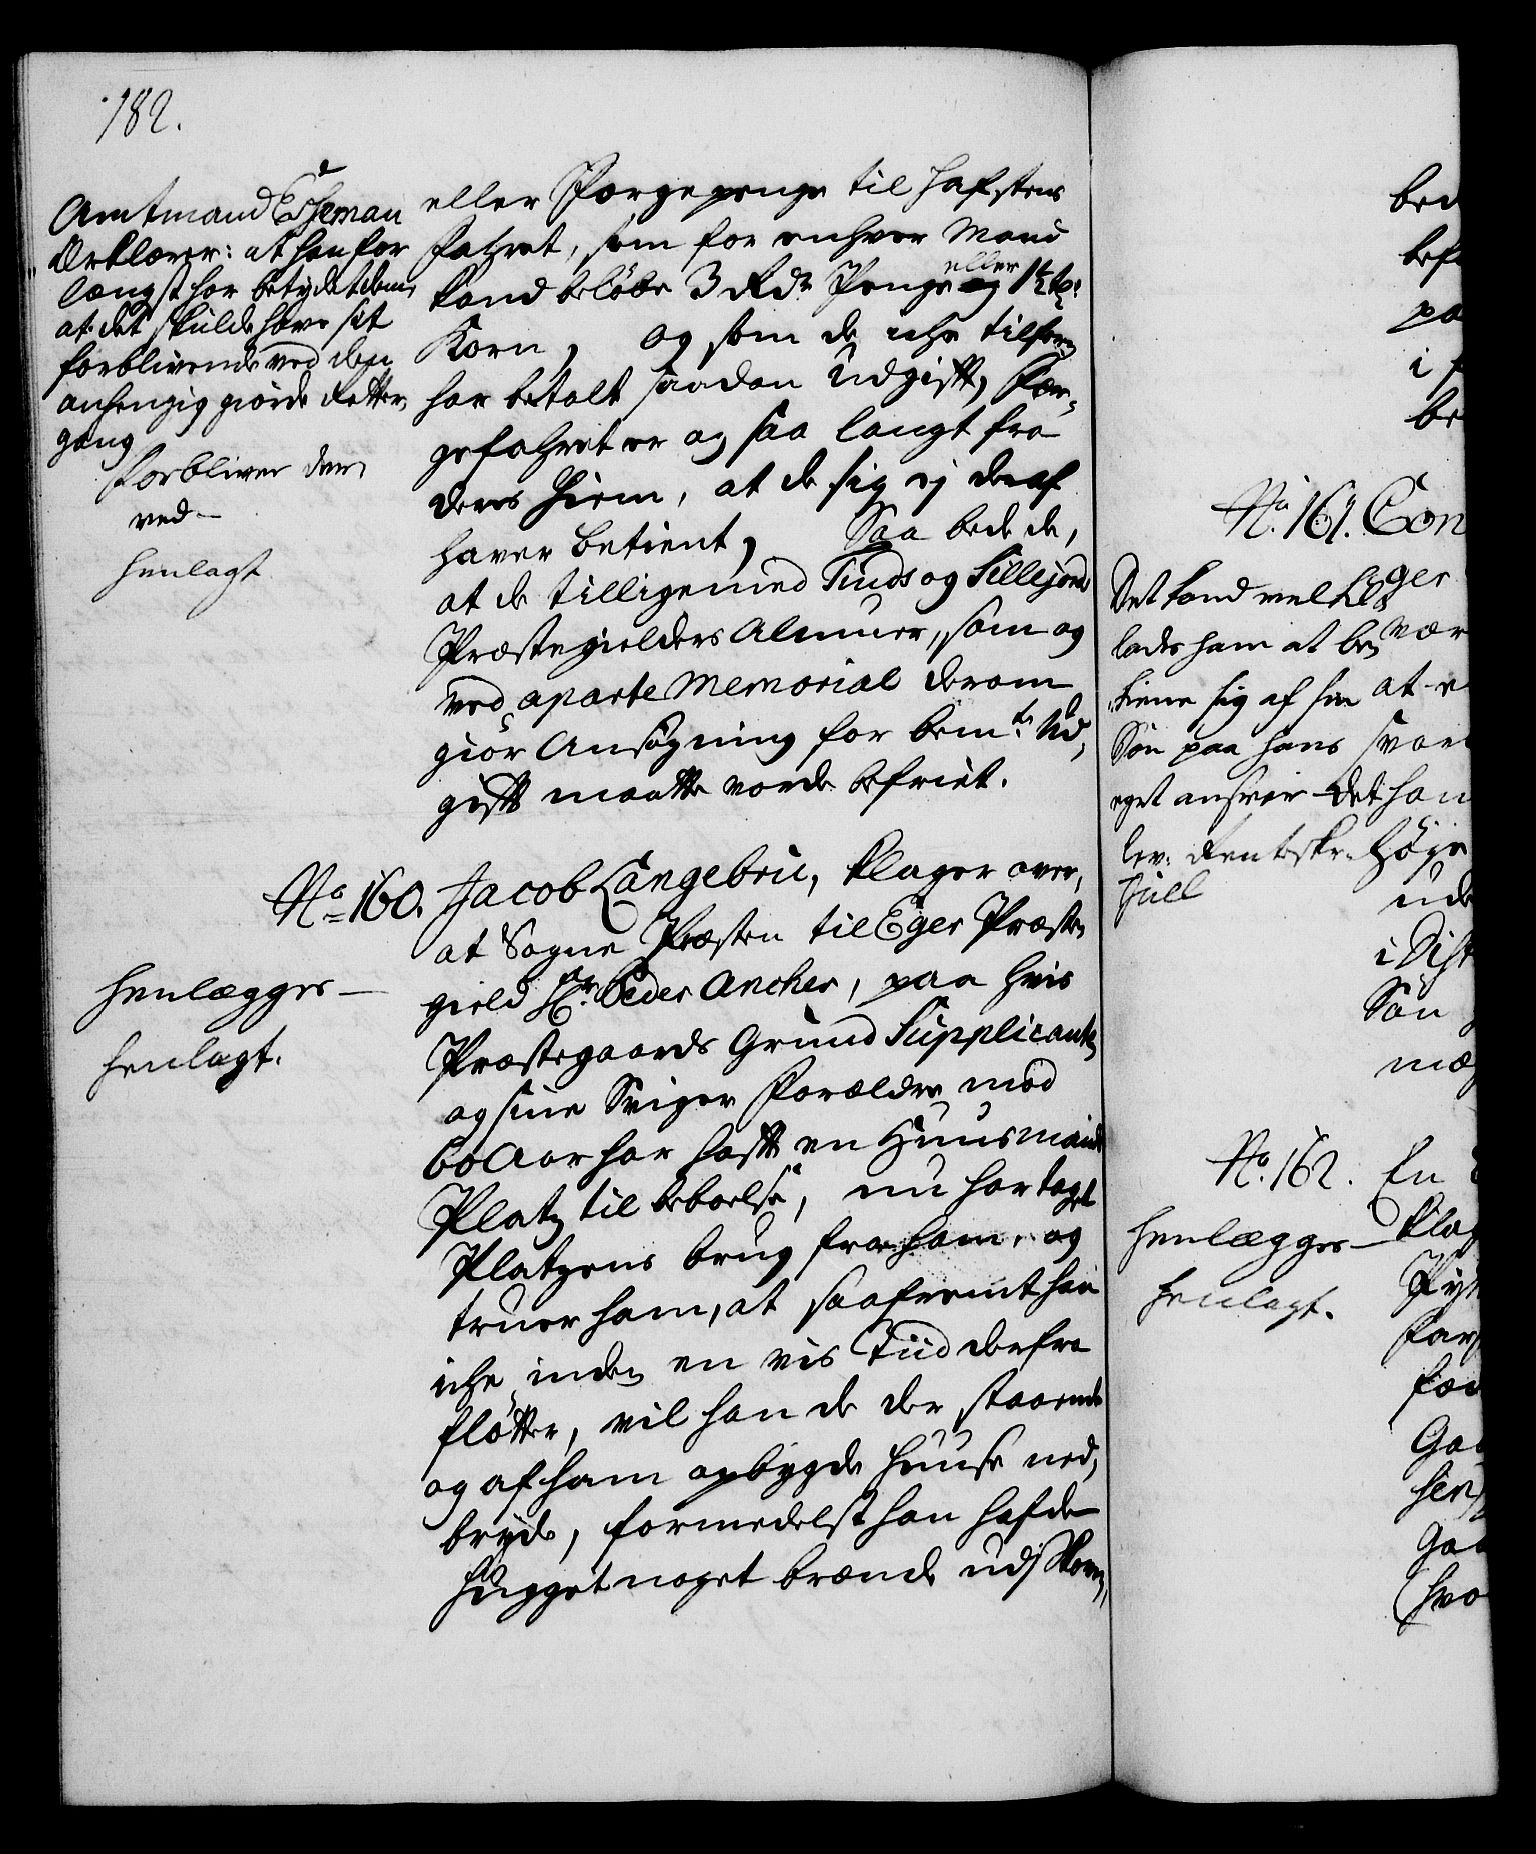 182.
Amtmand Theman
Erklærer: at han for
længst har betydet dem,
at det skulde have sit
forblivende ved den
anhengig giorde Retter,
gang
forbliver der,
ved
henlagt
eller Færge penge til Hafstens
Færget, som for enhver Mand
kand beløbe 3 Rdr Penge og eller 1½ tr:
Korn, og som de iche tilforn
har betalt saadan Udgifft, Fær-
gefahret er og saa langt fra
deres Hiem, at de sig ej deraf
haver betient, Saa bede de,
at de tilligemed Tinds og Sillejords
Præstegielders Almuer, som og
ved aparte Memorial derom
giør Ansøgning for bemte Ud,
gifft maatte vorde befriet.
No 160. Jacob Langebrii, klager over,
at Sogne Præsten til Eger Præste,
gield Hr. Peder Ancher, paa hvis
Præstegaards Grund Supplicanten
og sine Sviger Forældre med
60 Aar har hafft en Huusmands
Platz til beboelse, nu har taget
Platzens brug fra ham, og
truer ham, at saafremt han
iche inden en vis Tiid derfra
fløtter, vil han de der staaende
og af ham opbygde Huuse ned,
bryde, formedelst han hafde
hugget noget brænde udj Skoven,
henlægges
henlagt.
No. 161. Con
Det kand vel til
lades ham at be,
tiene sig af sin
Søn paa hans
eget ansvar
lev: Renteskr.
Juell
No. 162. En
henlægges
henlagt.